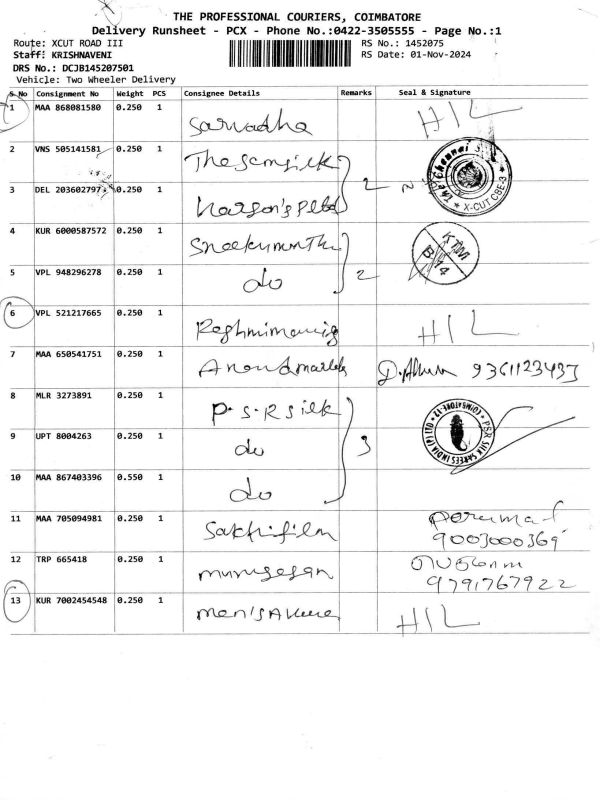 THE PROFESSIONAL COURIERS, COIMBATORE
Delivery Runsheet - PCX - Phone No.:0422-3505555 - Page No.:1
Route: XCUT ROAD III RS No.: 1452075
Staff: KRISHNAVENI RS Date: 01-Nov-2024
DRS No.: DCJB145207501
Vehicle: Two Wheeler Delivery
S.No Consignment No Weight PCS Consignee Details Remarks Seal & Signature
1 MAA 868081580 0.250 1 Sarvadha HIL
2 VNS 505141581 0.250 1 silk
3 DEL 203602797 0.250 1 2
The Chennai X-CUT CBE-3
4 KUR 6000587572 0.250 1
5 VPL 948296278 0.250 1 do 2
6 VPL 521217665 0.250 1 HIL
7 MAA 650541751 0.250 1 9361123437
8 MLR 3273891 0.250 1 P.S.R silk
9 UPT 8004263 0.250 1 do 3
PSR SILK SAREES INDIA (P) LTD COIMBATORE-12
10 MAA 867403396 0.550 1 do
11 MAA 705094981 0.250 1 Sakthi film Perumal
9003000369
12 TRP 665418 0.250 1 murugesan
9791767922
13 KUR 7002454548 0.250 1 men's HIL